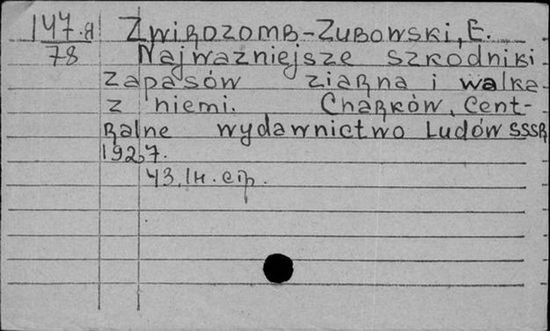 147.a Zwirozomb-Zubowski, E.
78 Najważniejsze szkodniki
zapasów ziarna i walka
z niemi. Charków, Cent-
ralne wydawnictwo Ludów SSSR
1927.
43, Iн. стр.